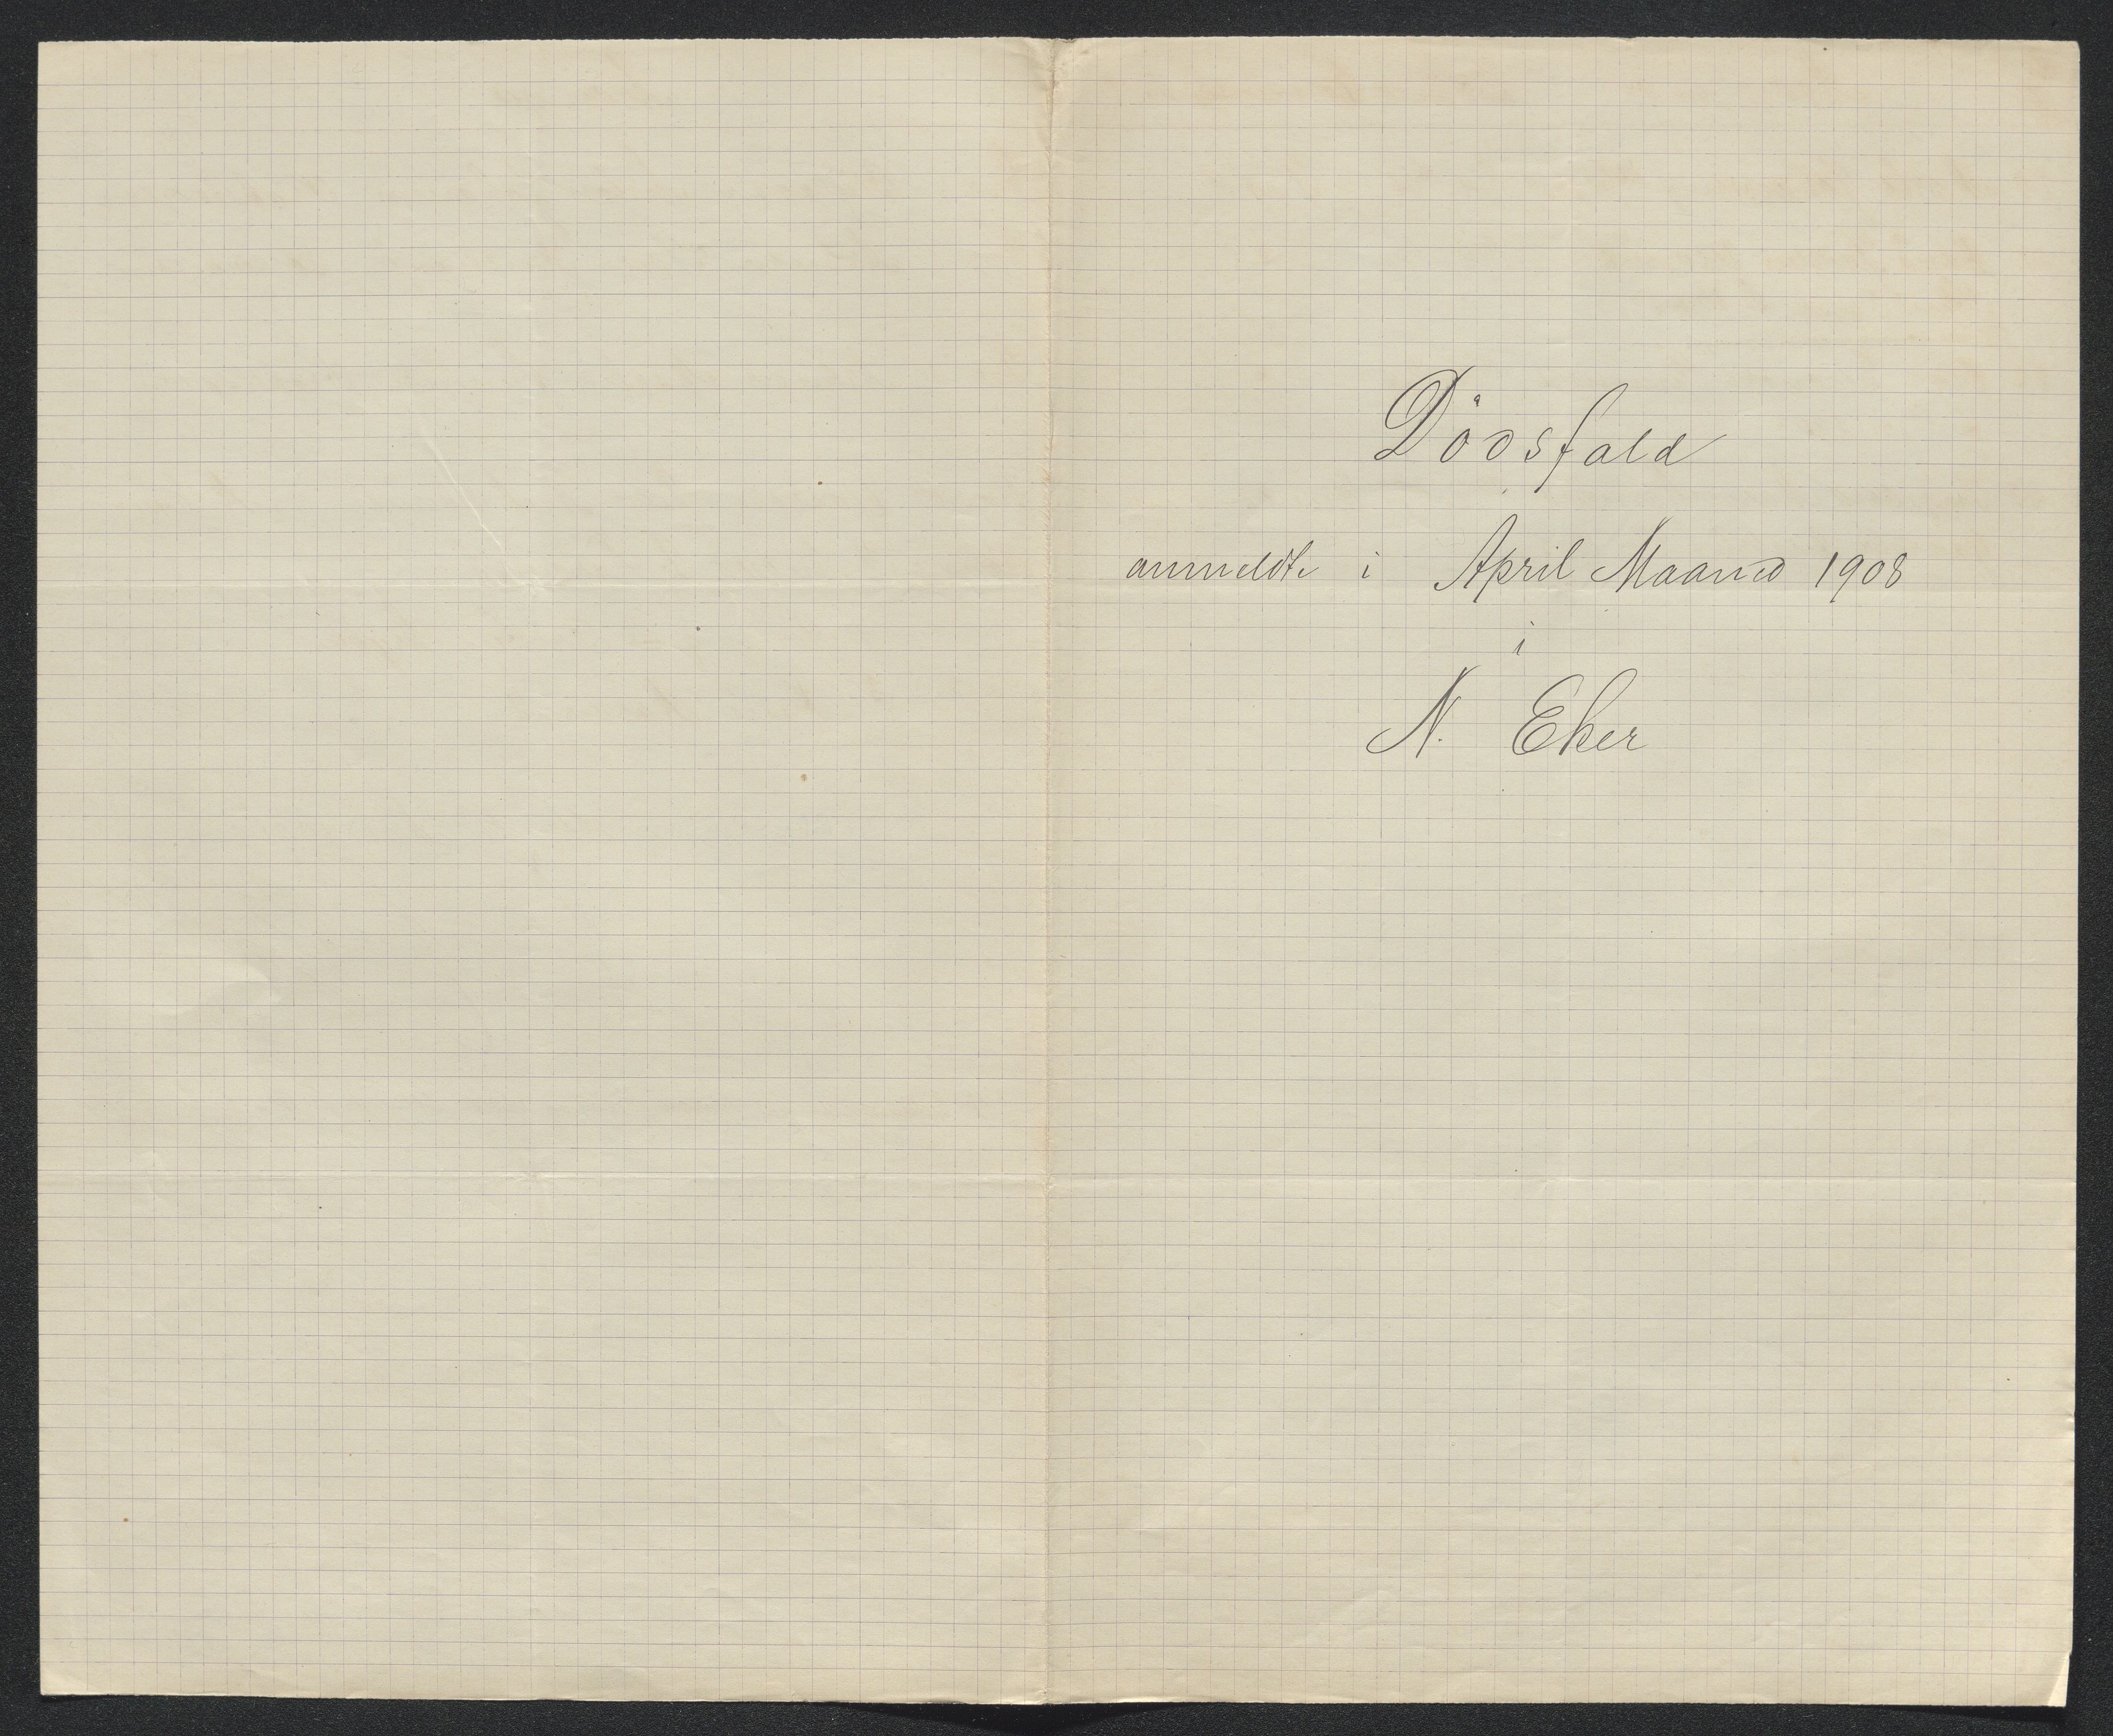 Dödsfald
anmeldte i April Maaned 1908
i
N. Eker